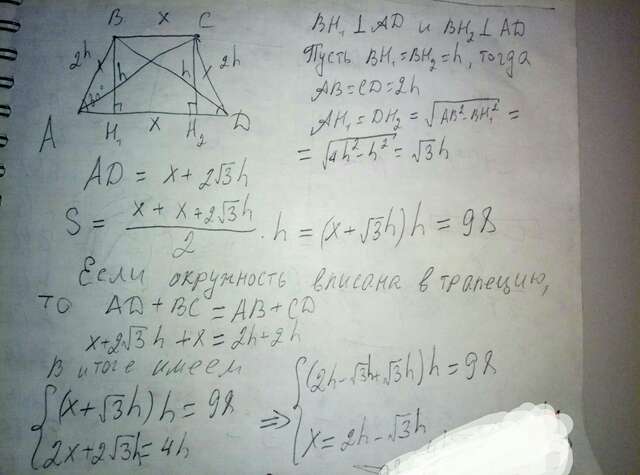 B x C
2h h h 2h
30°
A H₁ x H₂ D
BH₁ ⊥ AD и BH₂ ⊥ AD
Пусть BH₁ = BH₂ = h, тогда
AB = CD = 2h
AH₁ = DH₂ = √(AB² - BH₁²) =
= √(4h² - h²) = √3h
AD = x + 2√3h
S = (x + x + 2√3h)/2 · h = (x + √3h)h = 98
Если окружность вписана в трапецию,
то AD + BC = AB + CD
x + 2√3h + x = 2h + 2h
В итоге имеем
{(x + √3h)h = 98
2x + 2√3h = 4h
=> {(2h - √3h + √3h)h = 98
x = 2h - √3h